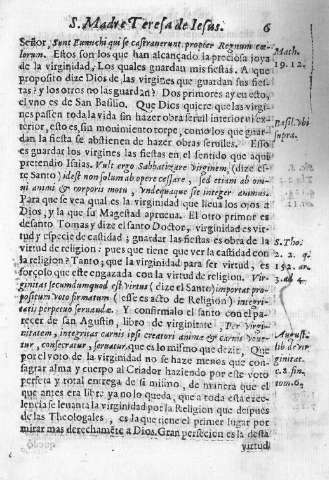 S. Madre Teresa de Iesus. 6
Señor, Sunt Eunuchi qui se castrauerunt propter Regnum cœ-
lorum. Estos son los que han alcançado la preciosa joya
de la virginidad, Los quales guardan mis fiestas. A que
proposito dize Dios de las virgines que guardan sus fies-
tas? y los otros no las guardan? Dos primores ay en esto,
el vno es de San Basilio. Que Dios quiere que las virgi-
nes passen toda la vida sin hazer obra seruil interior ni ex-
terior, esto es, sin mouimiento torpe, como los que guar-
dan la fiesta se abstienen de hazer obras seruiles. Esso
es guardar los virgines las fiestas en el sentido que aqui
pretendio Isaias. Vult ergo Sabbatizare virginem (dize es-
te Santo) idest non solum ab opere cessare, sed etiam ab om-
ni animi & corporis motu, vndequaque sit integer animus.
Para que se vea qual es la virginidad que lleua los ojos a
Dios, y la que su Magestad aprueua. El otro primor es
de santo Tomas y dize el santo Doctor, virginidad es vir-
tud y especie de castidad; guardar las fiestas es obra de la
virtud de religion? pues que tiene que ver la castidad con
la religion? Tanto, que la virginidad para ser virtud, es
forçoso que este engazada con la virtud de religion. Vir-
ginitas secundum quod est virtus (dize el Santo) importat pro-
positum voto firmatum (esse es acto de Religion) integri-
tatis perpetuo seruandæ. Y confirmalo el santo con el pa-
recer de san Agustin, libro de virginitate, Per virgi-
nitatem, integritas carnis ipsi creatori animæ & carnis voue-
tur, consecratur, seruatur, que es lo mismo que dezir, Que
por el voto de la virginidad no se haze menos que con-
sagrar alma y cuerpo al Criador haziendo por este voto
perfeta y total entrega de si mismo, de manera que el
que antes era libre, ya no lo queda, que a toda esta exce-
lencia se leuanta la virginidad por la Religion que despues
de las Theologales, es la que tiene el primer lugar por
mirar mas derechamẽte a Dios. Gran perfecion es la desta
virtud
Math.
19. 12.
Basil. vbi
supra.
S. Tho.
2. 2. q.
152. ar.
3. ad 4.
August.
lib de vir-
ginitat.
c. 8. fin.
tom. 6.